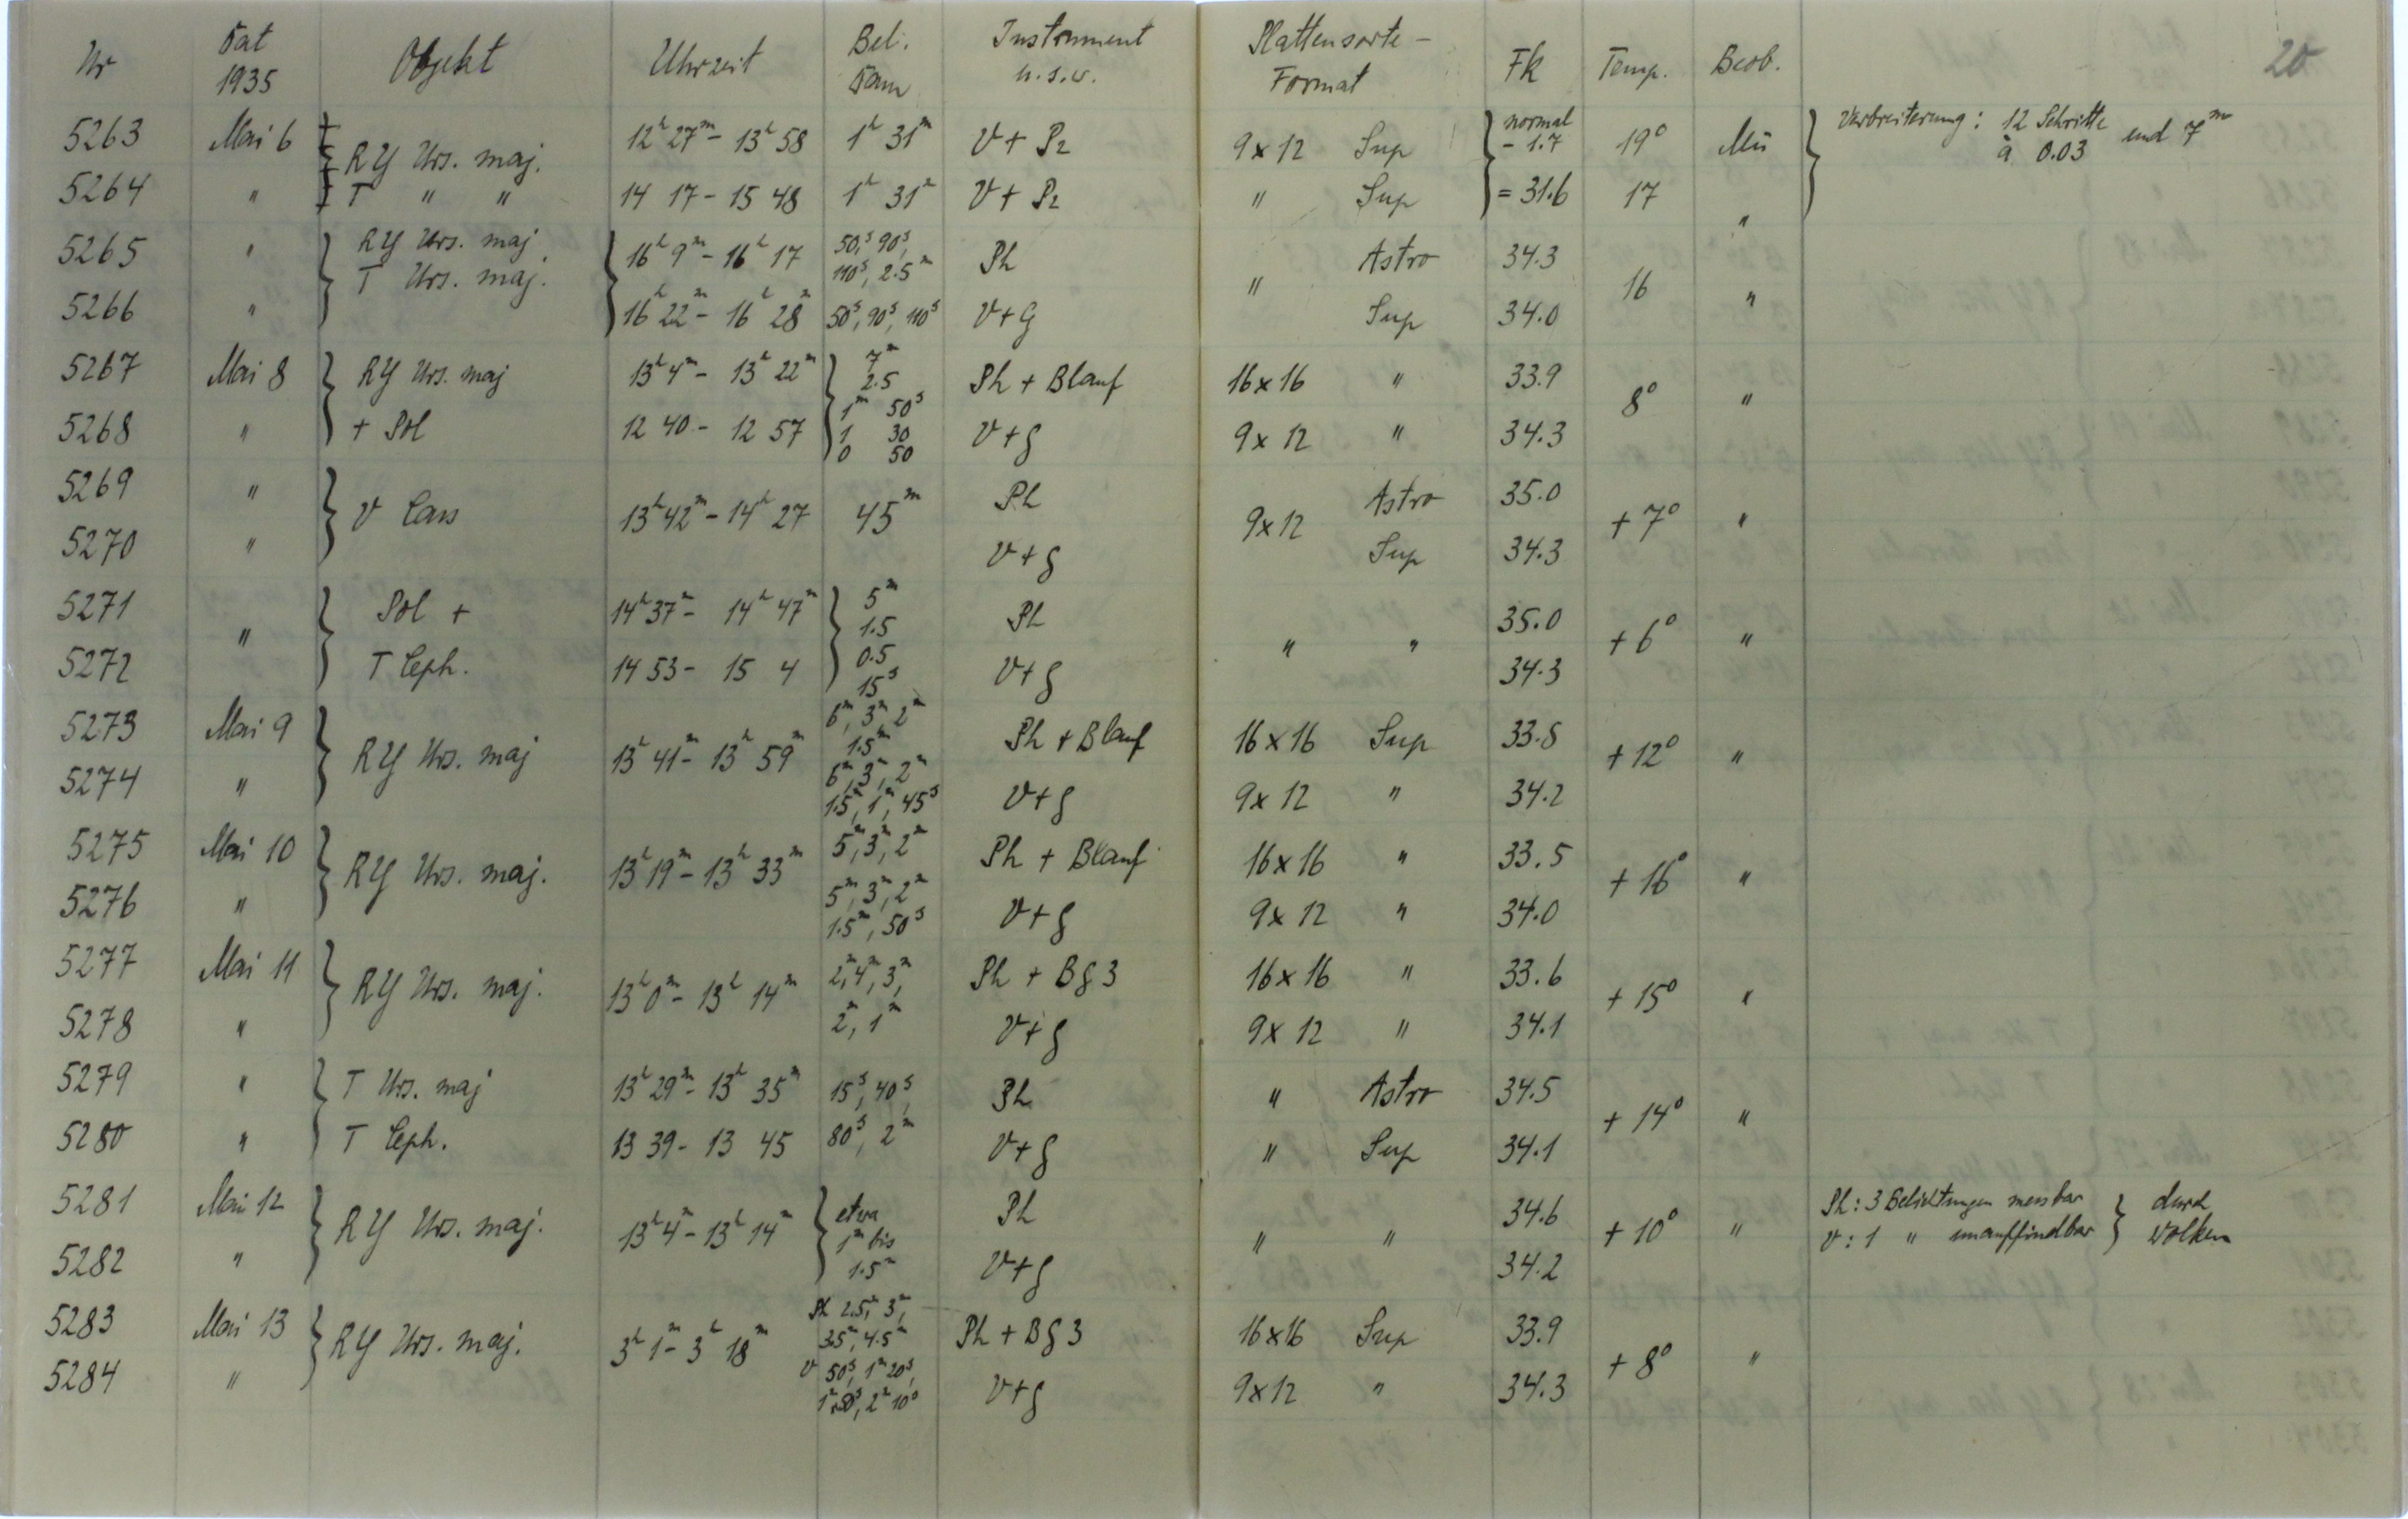 20
Nr Dat 1935 Objekt Uhrzeit Bel. Dau Instrument u.s.w. Plattensorte - Format Fk Temp. Beob.
5263 Mai 6 RY Urs. maj. 12h 27m - 13h 58 1h 31m V + P2 9 x 12 Sup normal - 1.7 19° Mü Verbreiterung: 12 Schritte à 0.03 und 7m
5264 " T " " 14 17 - 15 48 1h 31m V + P2 " Sup = 31.6 17 "
5265 " RY Urs. maj 16h 9m - 16h 17 50s, 90s, 110s, 2.5m Ph " Astro 34.3 16 "
5266 " T Urs. maj. 16h 22m - 16h 28m 50s, 90s, 110s V+G Sup 34.0
5267 Mai 8 RY Urs. maj 13h 4m - 13h 22m 7m 2.5 1m 50s Ph + Blauf 16 x 16 " 33.9 8° "
5268 " + Pol 12 40 - 12 57 1 30 0 50 V+g 9 x 12 " 34.3
5269 " V Cass 13h 42m - 14h 27 45m Ph 9 x 12 Astro 35.0 + 7° "
5270 " V+g Sup 34.3
5271 " Pol + 14h 37m - 14h 47m 5m 1.5 Ph " " 35.0 + 6° "
5272 T Ceph. 14 53 - 15 4 0.5 15s V+g 34.3
5273 Mai 9 RY Urs. maj 13h 41m - 13h 59m 6m, 3m, 2m 1.5m Ph + Blauf 16 x 16 Sup 33.8 + 12° "
5274 " 6m, 3m, 2m 1.5m, 1m, 45s V+g 9 x 12 " 34.2
5275 Mai 10 RY Urs. maj. 13h 19m - 13h 33m 5m, 3m, 2m Ph + Blauf 16 x 16 " 33.5 + 16° "
5276 " 5m, 3m, 2m 1.5m, 50s V+g 9 x 12 " 34.0
5277 Mai 11 RY Urs. maj. 13h 0m - 13h 14m 2m, 4m, 3m, Ph + Bg 3 16 x 16 " 33.6 + 15° "
5278 " 2m, 1m V+g 9 x 12 " 34.1
5279 " T Urs. maj 13h 29m - 13h 35m 15s, 40s, Ph " Astro 34.5 + 14° "
5280 " T Ceph. 13 39 - 13 45 80s, 2m V+g " Sup 34.1
5281 Mai 12 RY Urs. maj. 13h 4m - 13h 14m etwa 1m bis Ph " " 34.6 + 10° " Ph: 3 Belichtungen messbar } durch
5282 " 1.5m V+g 34.2 V: 1 " unauffindbar } Wolken
5283 Mai 13 RY Urs. maj. 3h 1m - 3h 18m Ph 2.5m, 3m, 3.5m, 4.5m Ph + Bg 3 16 x 16 Sup 33.9 + 8° "
5284 " V 50s, 1m 20s, V+g 9 x 12 " 34.3